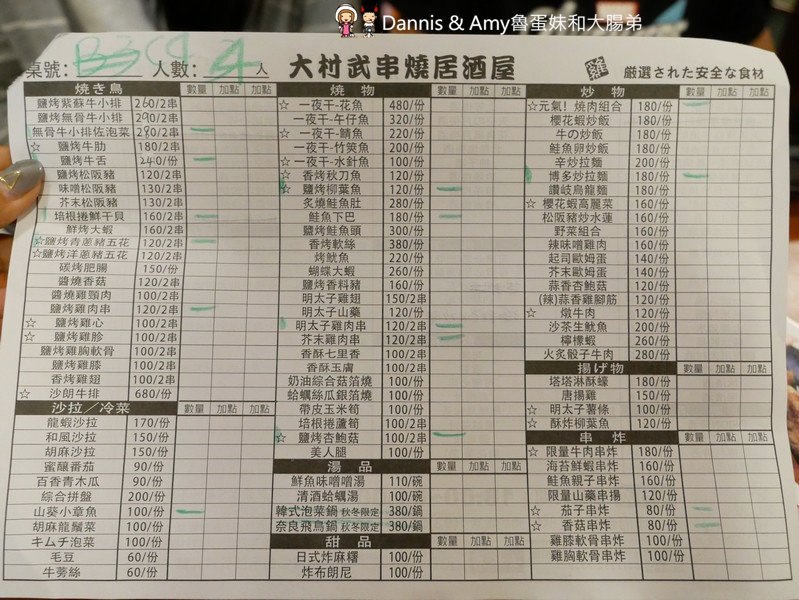 Dannis & Amy魯蛋妹和大腸弟
桌號: 人數: 4 人 大村武串燒居酒屋 雞 厳選された安全な食材
燒き鳥 數量 加點 加點
鹽烤紫蘇牛小排 260/2串
鹽烤無骨牛小排 290/2串
無骨牛小排佐泡菜 280/2串
☆ 鹽烤牛肋 180/2串
鹽烤牛舌 240/份
鹽烤松阪豬 120/2串
味噌松阪豬 130/2串
芥末松阪豬 130/2串
培根捲鮮干貝 160/2串
鮮烤大蝦 160/2串
☆鹽烤青蔥豬五花 120/2串
☆鹽烤洋蔥豬五花 120/2串
碳烤肥腸 150/份
醬燒香菇 120/2串
醬燒雞頸肉 100/2串
鹽烤雞肉串 120/2串
☆ 鹽烤雞心 100/2串
☆ 鹽烤雞胗 100/2串
鹽烤雞胸軟骨 100/2串
鹽烤雞膝 100/2串
香烤雞翅 100/2串
☆ 沙朗牛排 680/份
沙拉／冷菜 數量 加點 加點
龍蝦沙拉 170/份
和風沙拉 150/份
胡麻沙拉 150/份
蜜釀番茄 90/份
百香青木瓜 90/份
綜合拼盤 200/份
山葵小章魚 100/份
胡麻龍鬚菜 100/份
キムチ泡菜 100/份
毛豆 60/份
牛蒡絲 60/份
燒 物 數量 加點 加點
☆ 一夜干-花魚 480/份
一夜干-午仔魚 320/份
☆ 一夜干-鯖魚 220/份
一夜干-竹筴魚 200/份
☆一夜干-水針魚 100/份
☆ 香烤秋刀魚 120/份
☆ 鹽烤柳葉魚 120/份
炙燒鮭魚肚 280/份
鮭魚下巴 180/份
鹽烤鮭魚頭 300/份
香烤軟絲 380/份
烤魷魚 220/份
蝴蝶大蝦 260/份
鹽烤香料豬 160/份
明太子雞翅 150/2串
明太子山藥 120/份
明太子雞肉串 120/2串
☆ 芥末雞肉串 120/2串
香酥七里香 100/2串
香酥玉膚 100/2串
奶油綜合菇箔燒 100/份
蛤蠣絲瓜銀箔燒 100/份
帶皮玉米筍 100/份
培根捲蘆筍 100/2串
☆ 鹽烤杏鮑菇 100/2串
美人腿 100/份
湯 品 數量 加點 加點
鮮魚味噌噌湯 110/碗
清酒蛤蠣湯 100/碗
韓式泡菜鍋 秋冬限定 380/鍋
奈良飛鳥鍋 秋冬限定 380/鍋
甜 品 數量 加點 加點
日式炸麻糬 100/份
炸布朗尼 100/份
炒 物 數量 加點 加點
☆元氣! 燒肉組合 180/份
櫻花蝦炒飯 180/份
牛の炒飯 180/份
鮭魚卵炒飯 180/份
辛炒拉麵 200/份
博多炒拉麵 180/份
讚岐烏龍麵 180/份
☆ 櫻花蝦高麗菜 160/份
松阪豬炒水蓮 160/份
野菜組合 160/份
辣味噌雞肉 160/份
起司歐姆蛋 140/份
芥末歐姆蛋 140/份
蒜香杏鮑菇 120/份
(辣)蒜香雞腳筋 120/份
☆ 燉牛肉 120/份
沙茶生魷魚 200/份
檸檬蝦 260/份
火炙骰子牛肉 280/份
揚げ物 數量 加點 加點
塔塔淋酥蠔 180/份
唐揚雞 150/份
☆ 明太子薯條 100/份
☆ 酥炸柳葉魚 120/份
串 炸 數量 加點 加點
☆ 限量牛肉串炸 180/份
海苔鮮蝦串炸 160/份
鮭魚親子串炸 160/份
限量山藥串揚 120/份
☆ 茄子串炸 80/份
☆ 香菇串炸 80/份
雞膝軟骨串炸 100/份
雞胸軟骨串炸 100/份